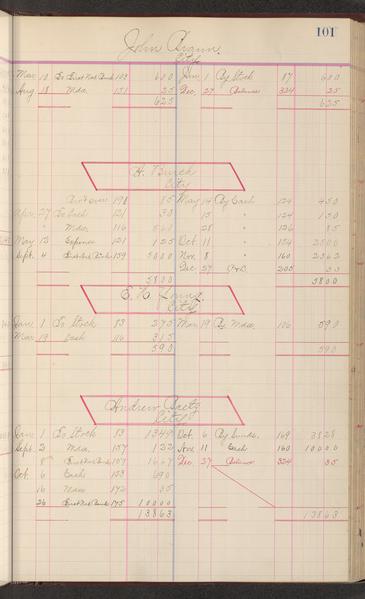 101
John Braun.
City
Mar 10 To First Nat Bank 103 600 Jan 1 By Stock 87 600
Aug 18 " Mdse. 131 25 Dec 27 " Balance 324 25
625 625
H. Burch
City
198 85 May 14 By Cash 124 450
Apr 27 To Cash 121 30 " 15 " 124 150
" " Mdse. 116 560 " 28 " 126 85
May 13 " Expense 121 125 Oct. 11 " 154 2500
Sept. 4 " First Nat Bank 159 5000 Nov 8 " 160 2562
Dec 27 " 200 53
5800 5800
City.
Jan 1 To Stock 83 275 Mar 19 By Mdse. 106 590
Mar 19 " Cash 116 315
590 590
Andrew Bretz
City
Jan 1 To Stock 83 1349 Oct. 6 By Sunds. 169 3828
Sept. 3 " Mdse. 157 122 Nov 11 " Cash 160 10000
" 8 " First Nat Bank 157 1667 Dec 27 " Balance 324 35
Oct. 6 " Cash 153 690
" 16 " Mdse 172 35
" 26 " First Nat Bank 175 10000
13863 13863